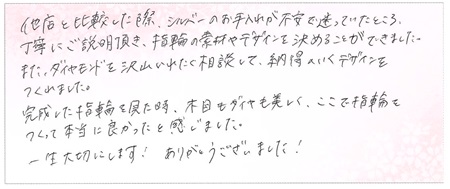 他店と比較した際、シルバーのお手入れが不安で迷っていたところ、
丁寧にご説明頂き、指輪の素材やデザインを決めることができました。
また、ダイヤモンドを沢山いれたく相談して、納得のいくデザインを
つくれました。
完成した指輪を見た時、木目もダイヤも美しく、ここで指輪を
つくって本当に良かったと感じました。
一生大切にします! ありがとうございました!